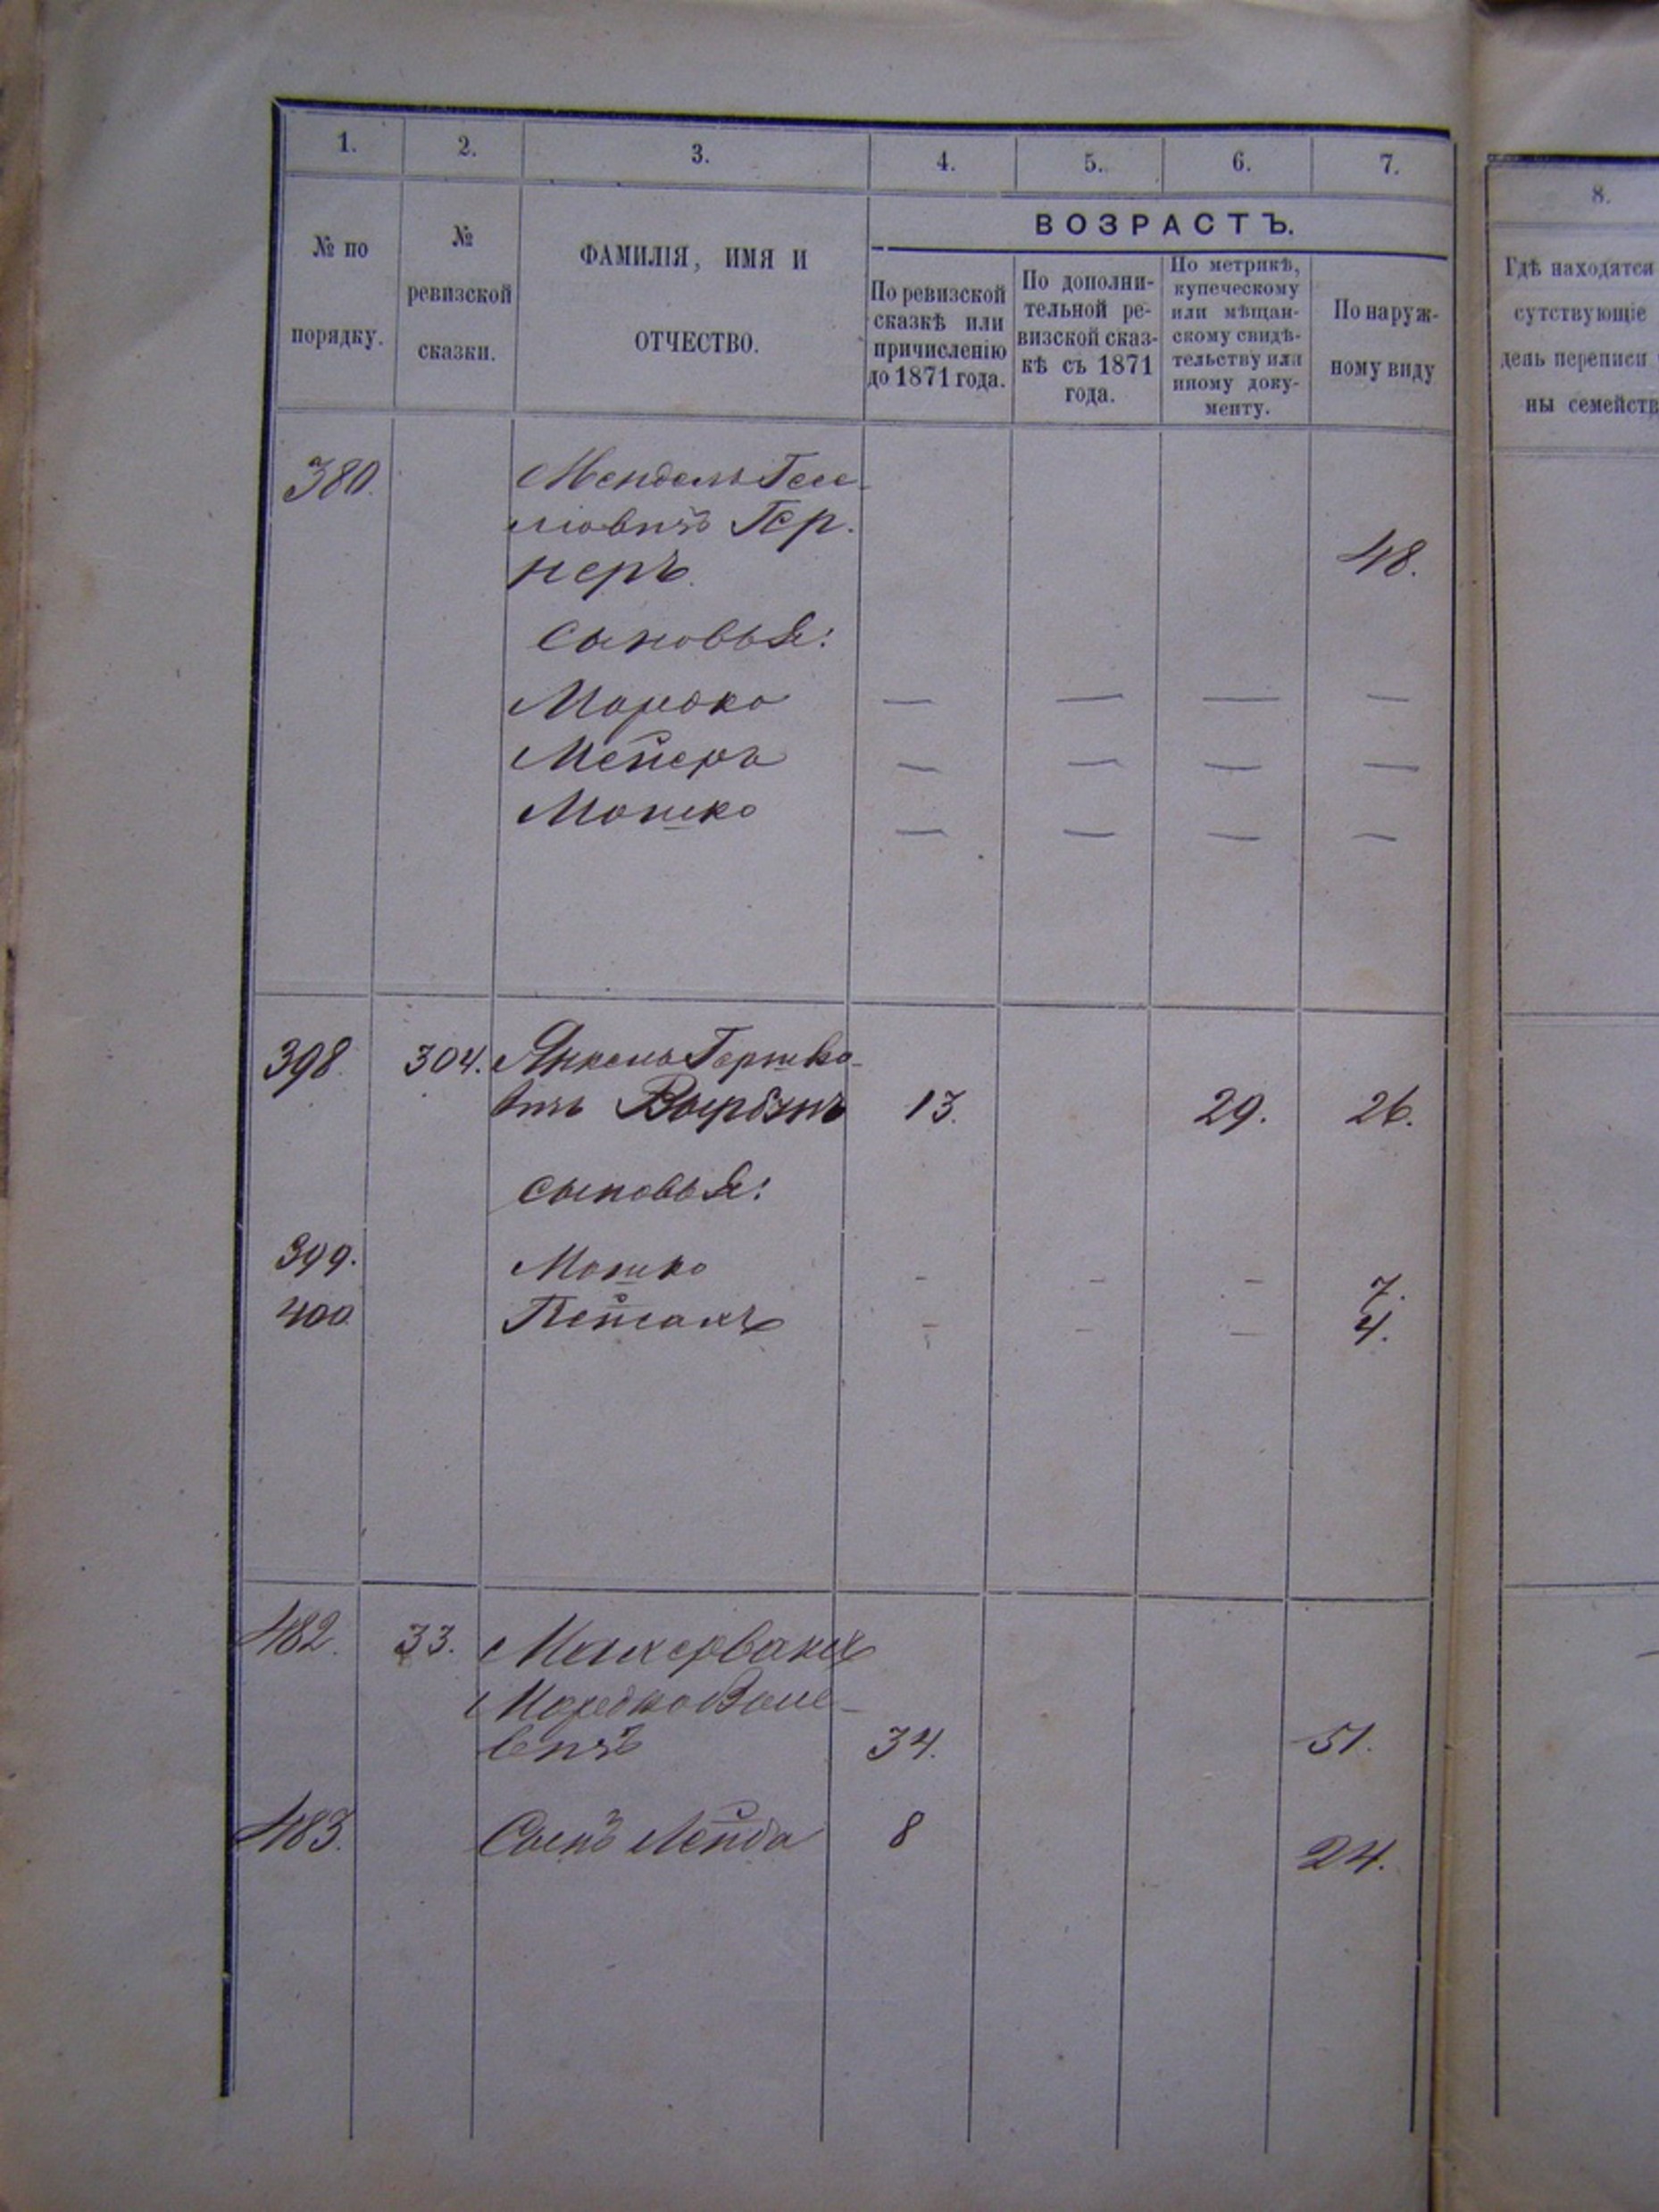 1. 2. 3. 4. 5. 6. 7. 8.
ВОЗРАСТЪ.
№ по
порядку.
№
ревизской
сказки.
ФАМИЛІЯ, ИМЯ И
ОТЧЕСТВО.
По ревизской
сказкѣ или
причисленію
до 1871 года.
По дополни-
тельной ре-
визской сказ-
кѣ съ 1871
года.
По метрикѣ,
купеческому
или мѣщан-
скому свидѣ-
тельству или
иному доку-
менту.
По наруж-
ному виду
Гдѣ находятся
сутствующіе
день переписи
ны семейств
380. Мендель
Гер-
неръ. 48.
Сыновья:
Мордко — — — —
Мейеръ — — — —
Мошко — — — —
398 304. Янкель Гершко-
вичъ 13. 29. 26.
сыновья:
399. Мошко - - - 7.
400. Пейсахъ - - - 4.
482. 33.
Мордко
вичъ 34. 51.
483. Сынъ Лейба 8 24.